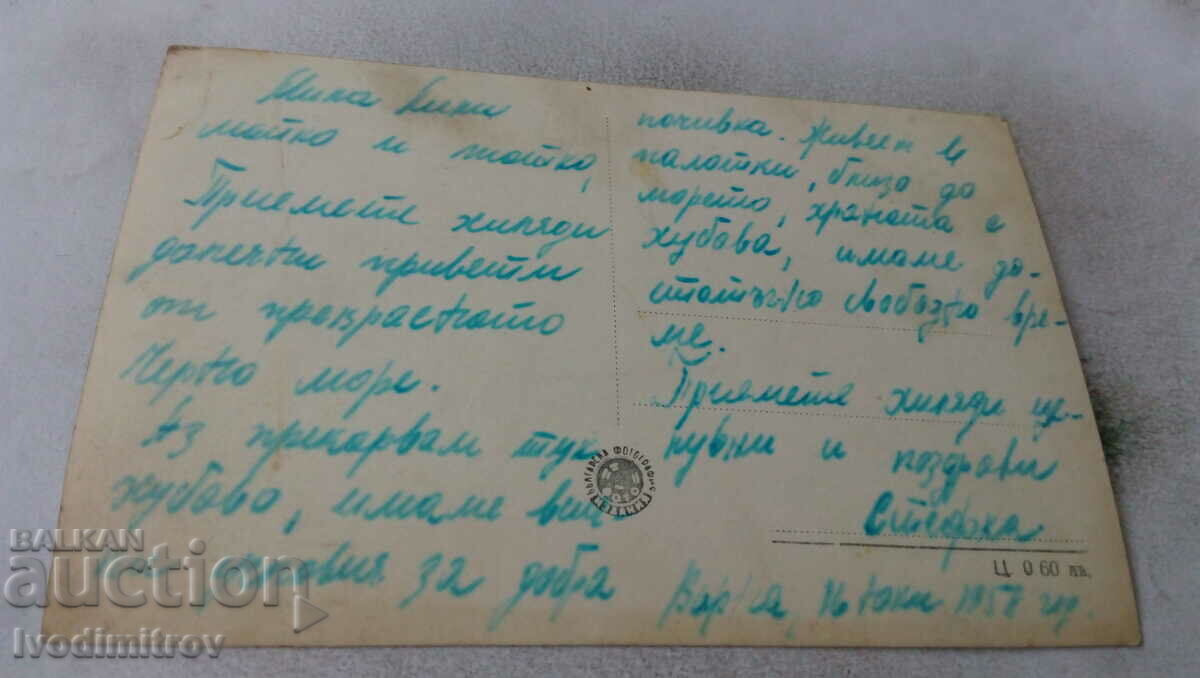 Мила Бики
майко и татко,
Приемете хиляди
далечни привети
от прекрасното
Черно море.
Аз прекарвам тук
хубаво, имаме
условия за добра
почивка. Живеем в
палатки, близо до
морето, храната е
хубава, имаме до-
статъчно свободно вре-
ме.
Приемете хиляди це-
лувки и поздрави
Стефка
Варна, 16 юни 1957 г.
БЪЛГАРСКА ФОТОГРАФИЯ
Ц. 0 60 лв.
BALKAN
auction
Ivodimitrov